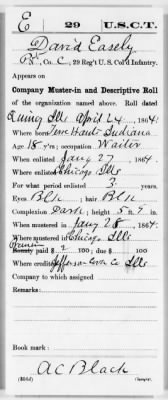 E 29 U.S.C.T.
David Easely
Pvt., Co. C, 29 Reg't U.S. Col'd Infantry.
Appears on
Company Muster-in and Descriptive Roll
of the organization named above. Roll dated
Quincy Ills April 24, 1864.
Where born Terre Haute Indiana
Age 18 y'rs; occupation Waiter
When enlisted Jany 27, 1864.
Where enlisted Chicago Ills
For what period enlisted 3 years.
Eyes Blk; hair Blk
Complexion Dark; height 5 ft. in.
When mustered in Jany 28, 1864.
Where mustered in Chicago Ills
Bounty paid $ 100; due $ 100
Where credited Jefferson Co Ills
Company to which assigned
Remarks:
Book mark:
A C Black
Copyist.